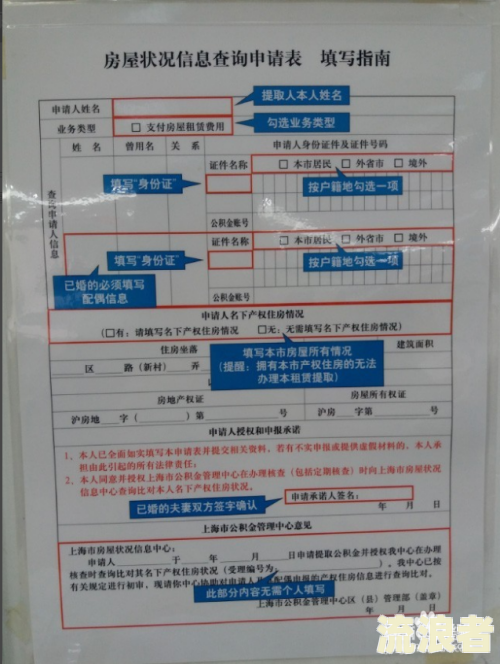 房屋状况信息查询申请表 填写指南
申请人姓名
提取人本人姓名
业务类型 □ 支付房屋租赁费用
勾选业务类型
姓 名 曾用名 关 系 申请人身份证件及证件号码
证件名称 □ 本市居民 □ 外省市 □ 境外
填写“身份证”
按户籍地勾选一项
公积金账号
查询申请人信息
证件名称 □ 本市居民 □ 外省市 □ 境外
填写“身份证”
按户籍地勾选一项
公积金账号
已婚的必须填写
配偶信息
申请人名下产权住房情况
(□有:请填写名下产权住房情况 □无:无需填写名下产权住房情况)
住房坐落 建筑面积
填写本市房屋所有情况
(提醒:拥有本市产权住房的无法
办理本租赁提取)
区 路(新村) 弄
房地产权证 房屋所有权证
沪房地____字(______)第 号 沪房____字第 号
申请人授权和申报承诺
1、本人已全面如实填写本申请表并提交相关资料,若有不实申报或提供虚假材料的,本人承
担由此引起的所有法律责任;
2、本人同意并授权上海市公积金管理中心在办理核查(包括定期核查)时向上海市房屋状况
信息中心查询比对本人名下产权住房状况。
已婚的夫妻双方签字确认
申请承诺人签名:
年 月 日
上海市公积金管理中心意见
上海市房屋状况信息中心:
申请人______于____年____月____日申请提取公积金并授权我中心在办理
核查时查询比对其名下产权住房状况(受理编号为:______),我中心已按
有关规定进行初审,现请你中心协助对申请人及配偶申报的产权住房信息进行查询比对。
此部分内容无需个人填写
上海市公积金管理中心区(县)管理部(盖章)
年 月 日
流浪者